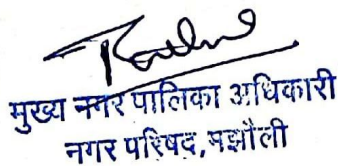 मुख्य नगर पालिका अधिकारी
नगर परिषद,मझौली